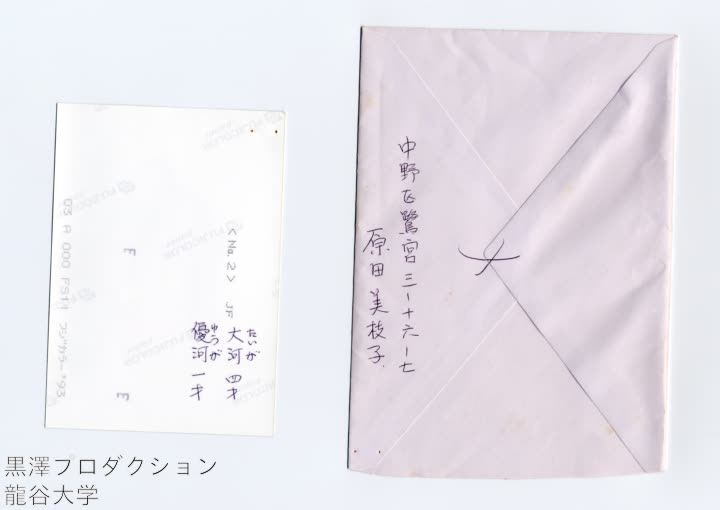 中野区鷺宮三ー十六ー七
原田美枝子
<No.2>
大河 四才
たいが
優河 一才
ゆうが
FUJICOLOR
黒澤プロダクション
龍谷大学